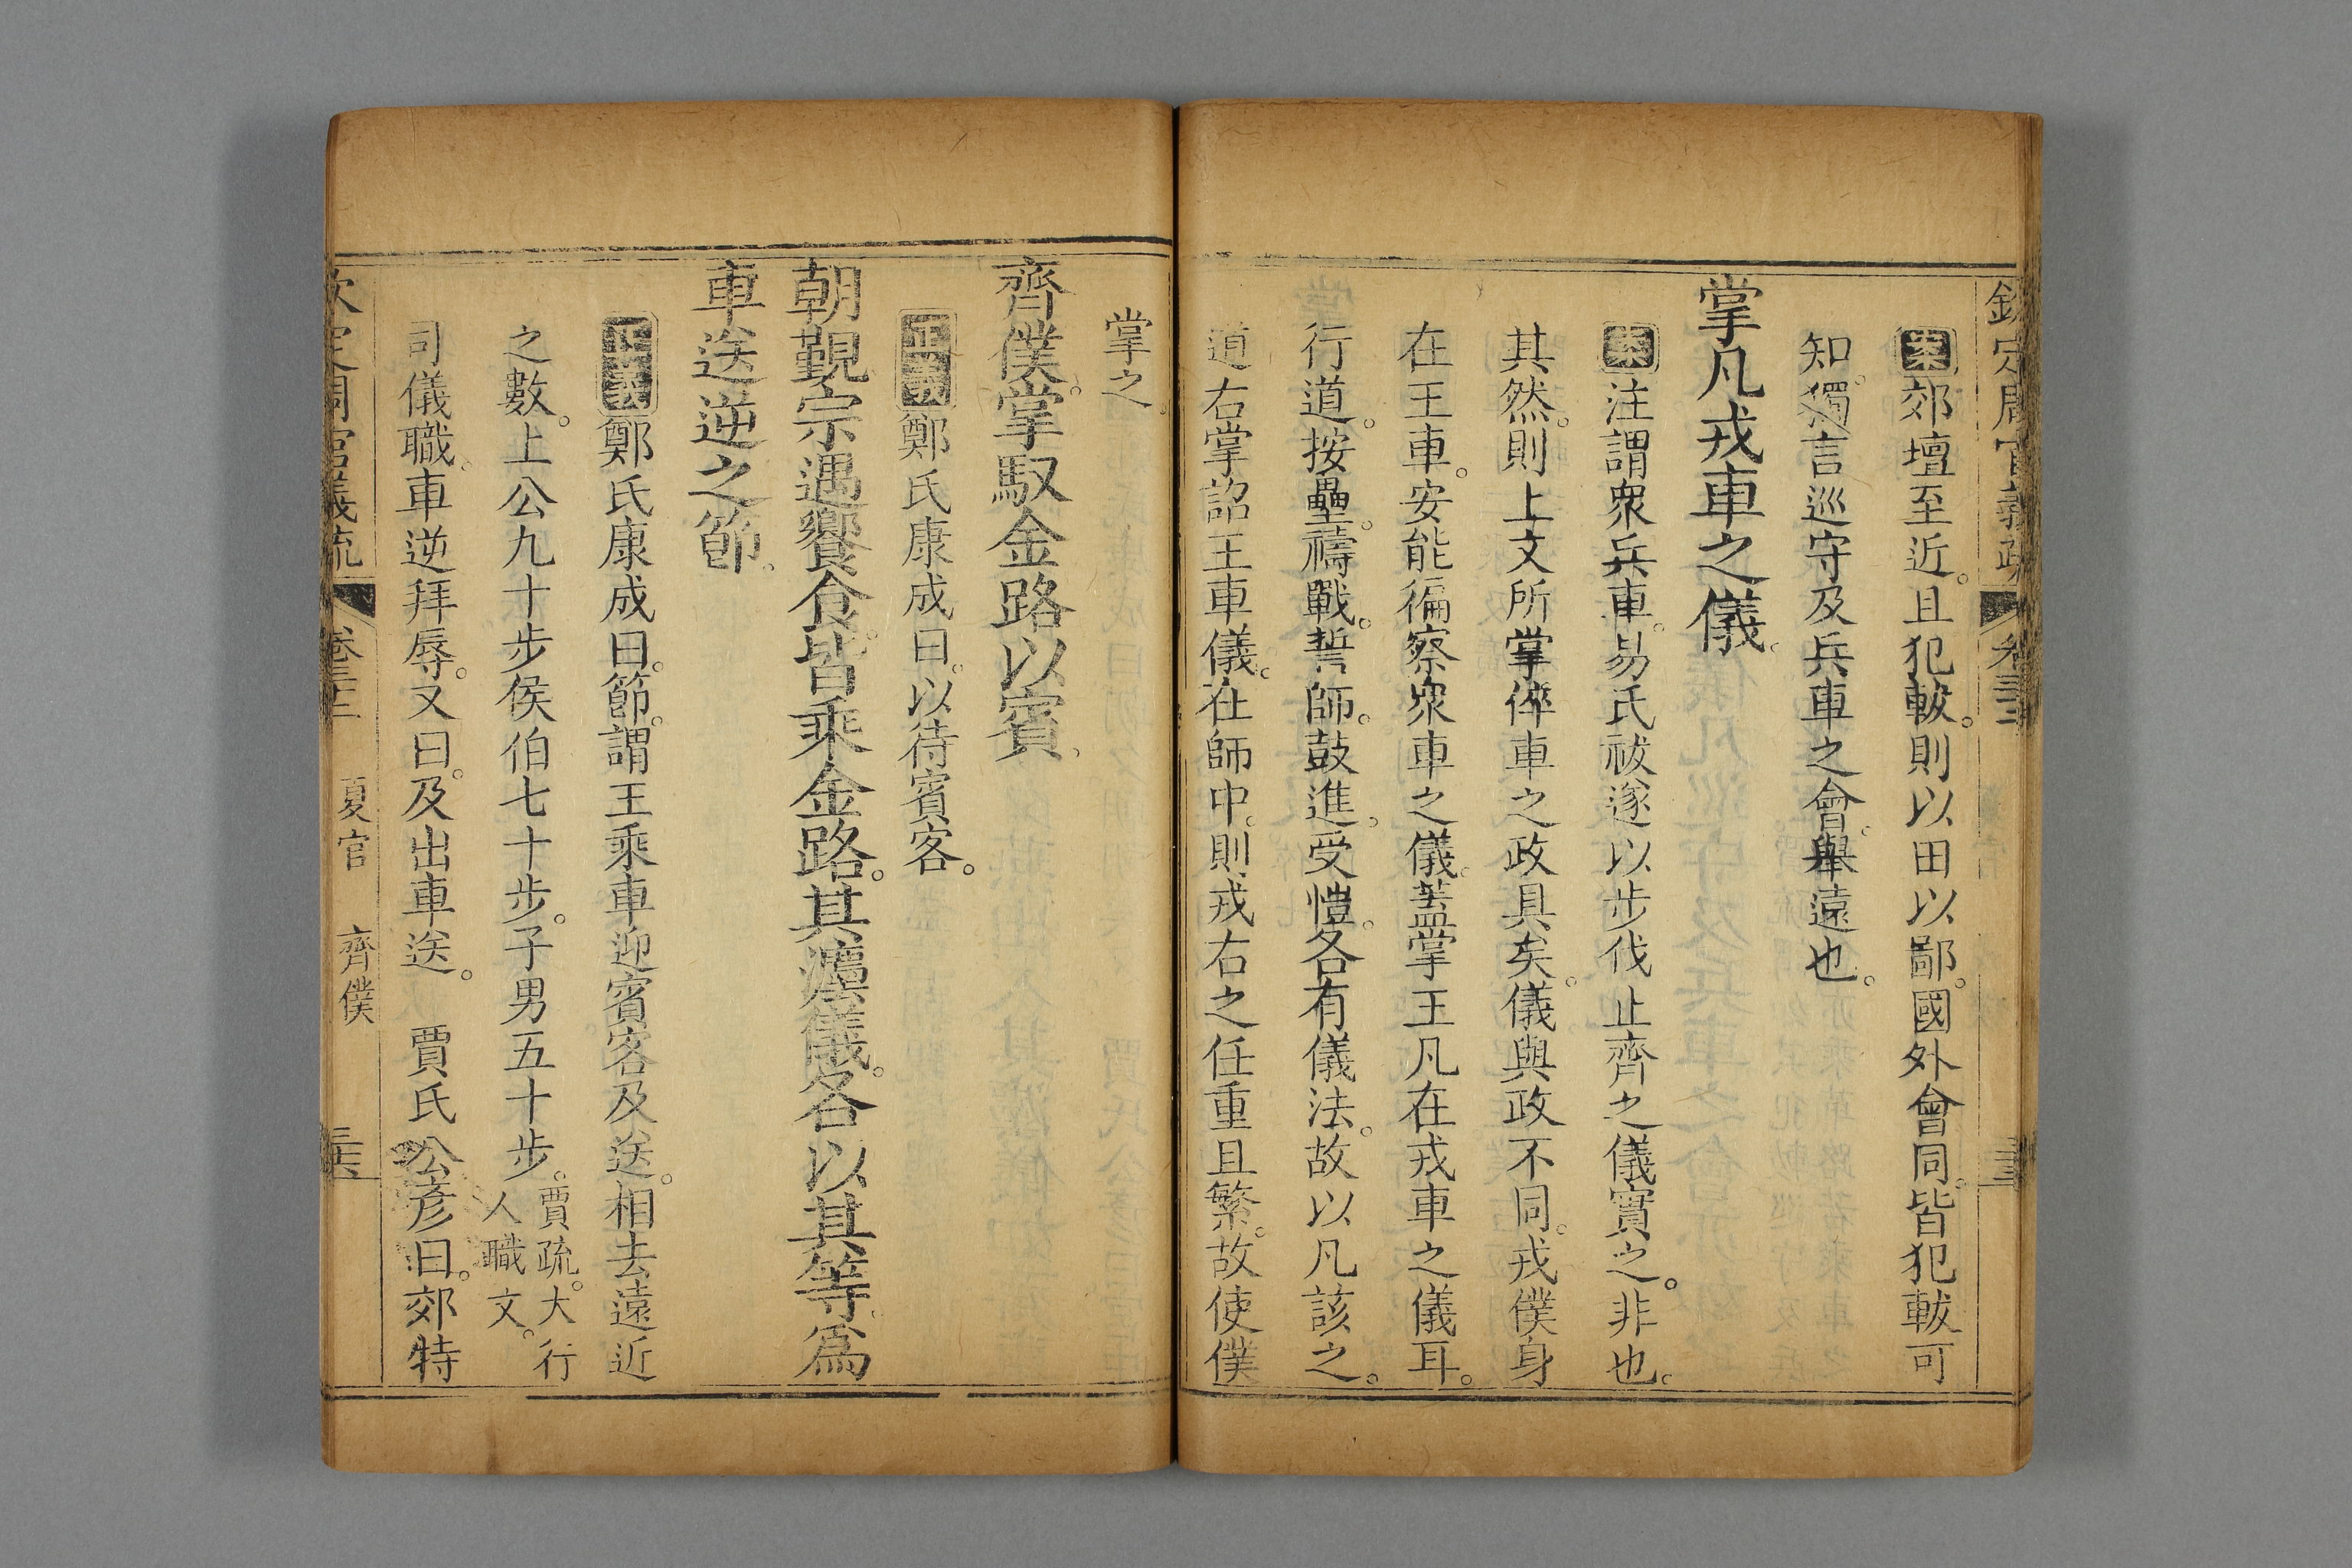 欽定周官義疏 卷三十二
案郊壇至近。且犯軷。則以田以鄙。國外會同。皆犯軷可
知。獨言巡守及兵車之會。舉遠也。
掌凡戎車之儀。
案注謂衆兵車。易氏祓遂以步伐止齊之儀實之。非也。
其然。則上文所掌倅車之政具矣。儀與政不同。戎僕身
在王車。安能徧察衆車之儀。蓋掌王凡在戎車之儀耳。
行道。按壘。禱戰。誓師。鼓進。受愷。各有儀法。故以凡該之。
道右掌詔王車儀。在師中。則戎右之任重且繁。故使僕
掌之。
齊僕。掌馭金路以賓。
正義鄭氏康成曰。以待賓客。
朝覲宗遇饗食。皆乘金路。其灋儀。各以其等。爲
車送逆之節。
正義鄭氏康成曰。節。謂王乘車迎賓客及送。相去遠近
之數。上公九十步。侯伯七十步。子男五十步。賈疏。大行人職文。
司儀職。車逆拜辱。又曰。及出車送。 賈氏公彥曰。郊特
欽定周官義疏 卷三十二 夏官 齊僕